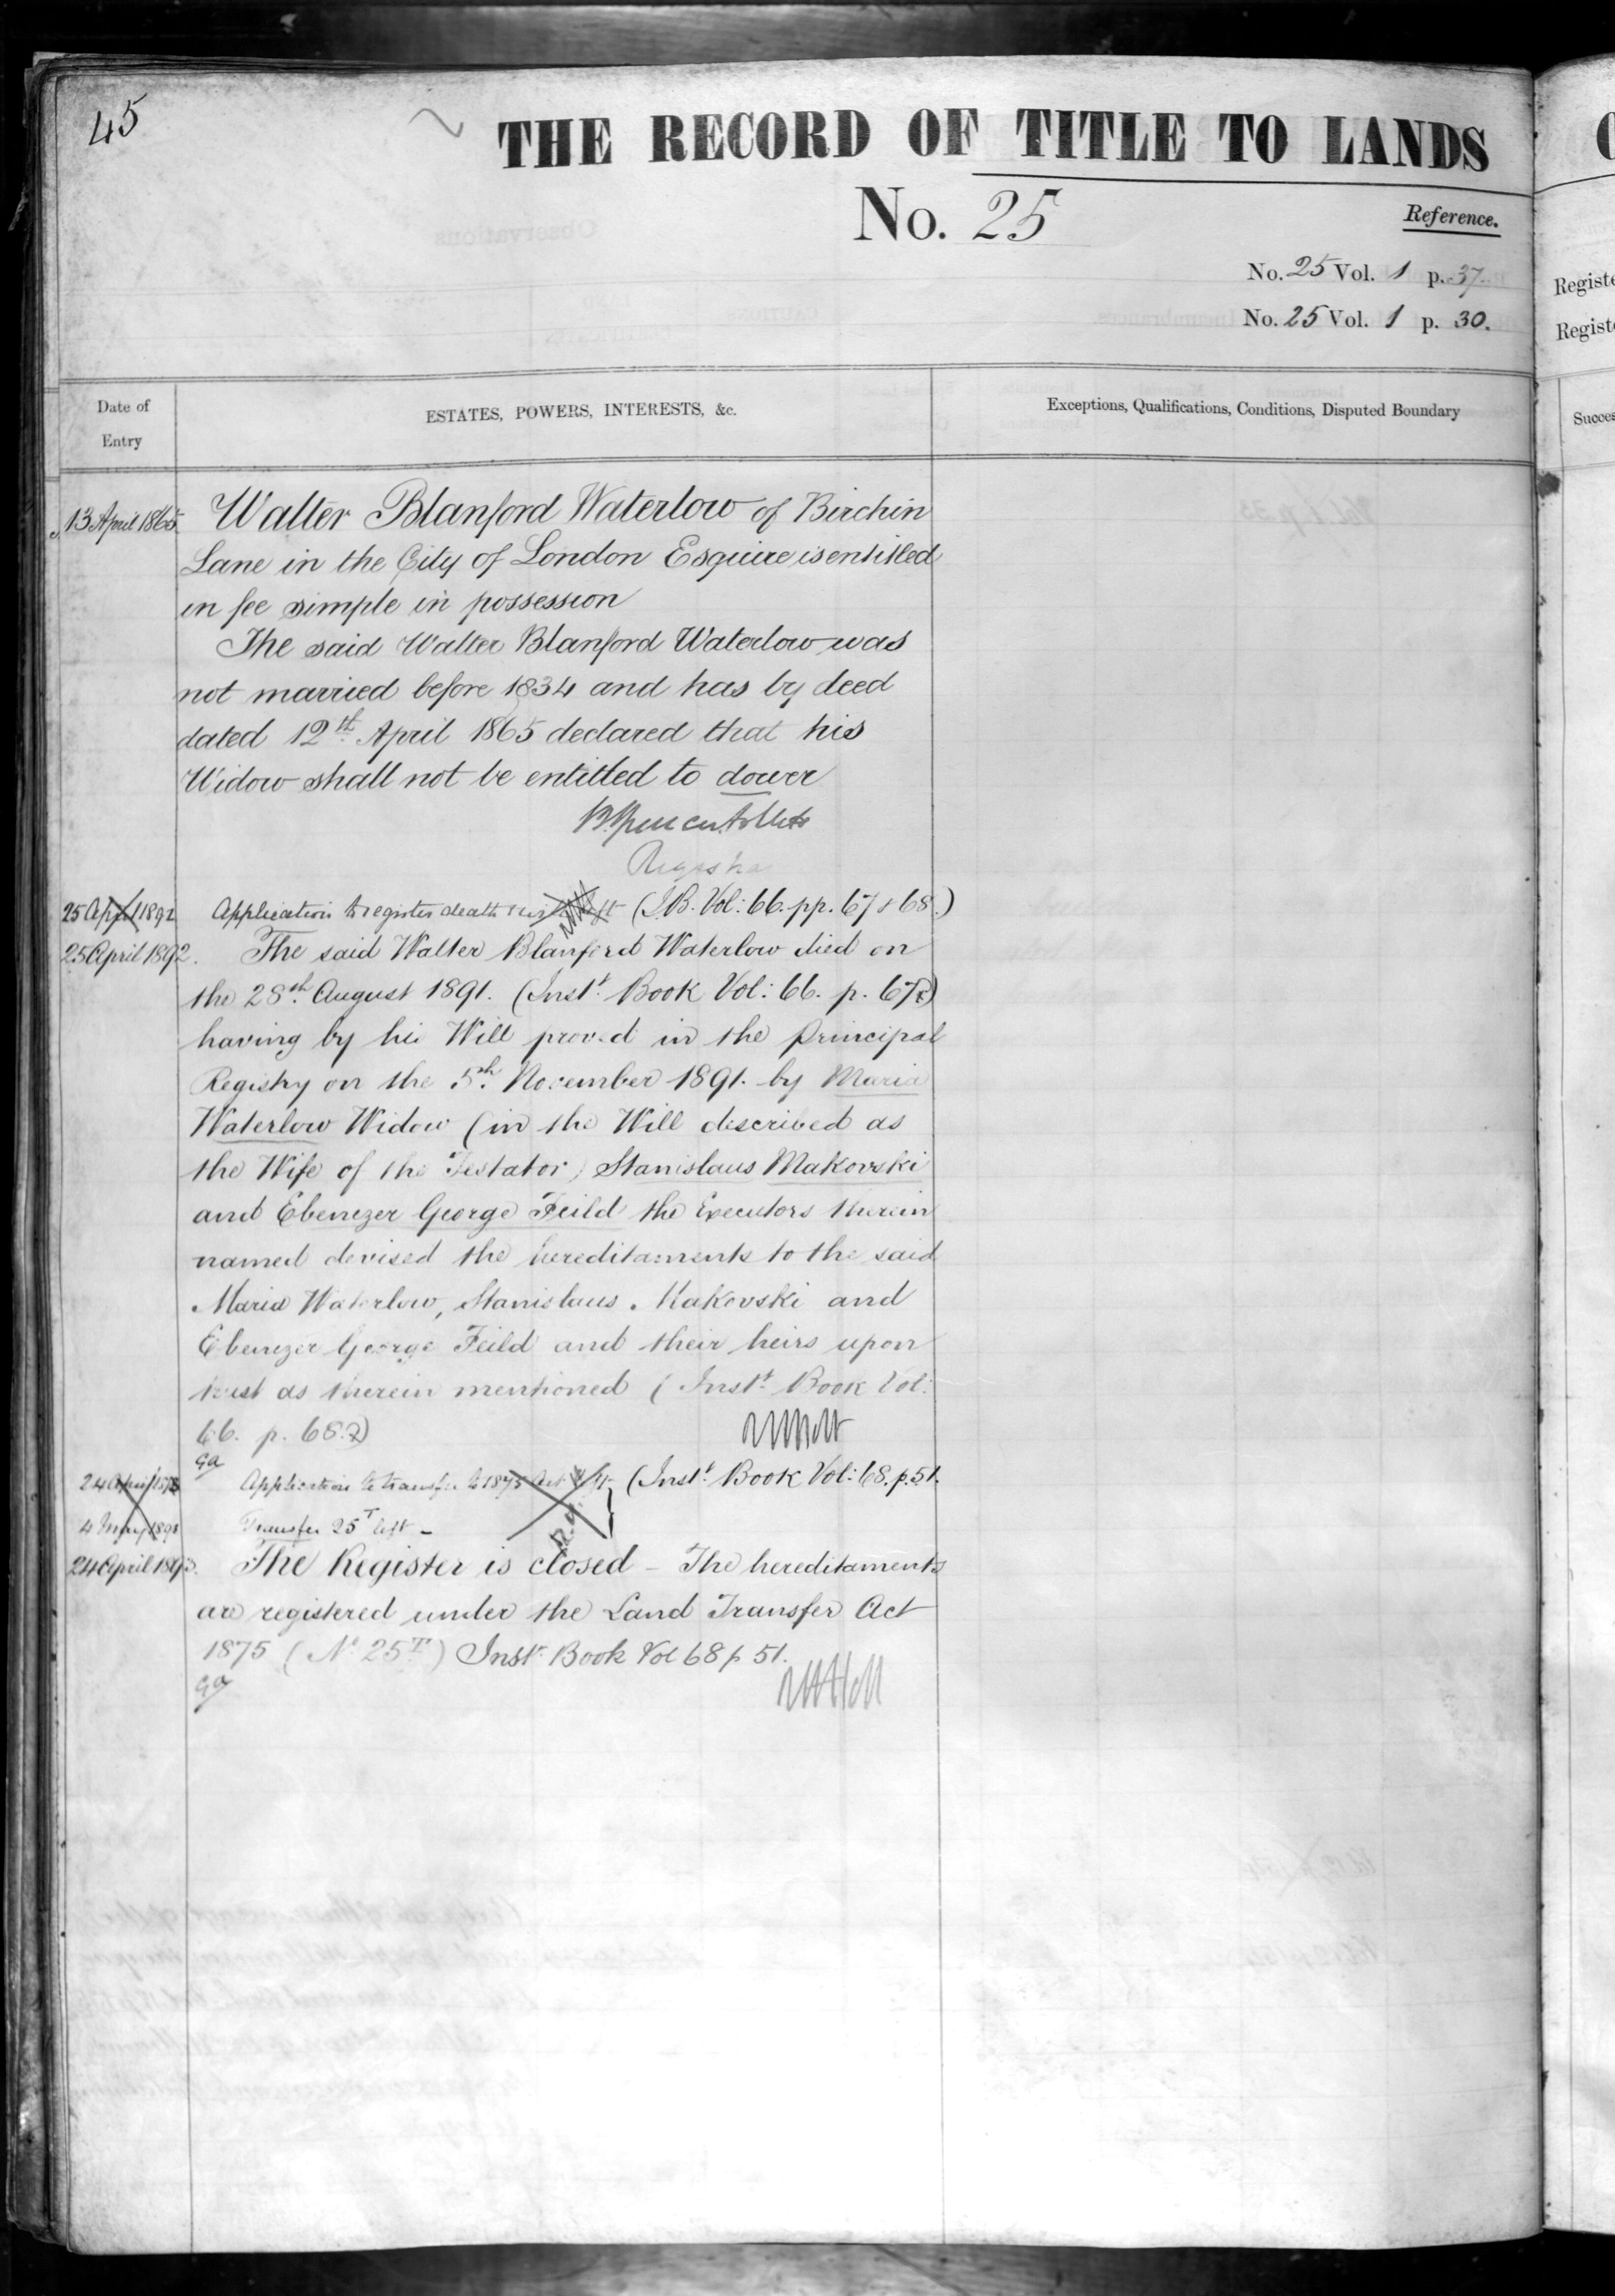 45
THE RECORD OF TITLE TO LANDS
No. 25
Reference.
No. 25 Vol. 1 p. 37.
No. 25 Vol. 1 p. 30.
Registe
Regist
Date of
Entry
ESTATES, POWERS, INTERESTS, &c.
Exceptions, Qualifications, Conditions, Disputed Boundary
Succes
13 April 1865. Walter Blanford Waterlow of Birchin
Lane in the City of London Esquire is entitled
in fee simple in possession
The said Walter Blanford Waterlow was
not married before 1834 and has by deed
dated 12th April 1865 declared that his
Widow shall not be entitled to dower
25 April 1892 Application to register death & will left (I.B. Vol: 66. pp. 67 & 68.)
25 April 1892. The said Walter Blanford Waterlow died on
the 28th August 1891. (Inst. Book Vol: 66. p. 67)
having by his Will proved in the Principal
Registry on the 5th November 1891. by Maria
Waterlow Widow (in the Will described as
the Wife of the Testator) Stanislaus Makovski
and Ebenezer George Feild the Executors therein
named devised the hereditaments to the said
Maria Waterlow, Stanislaus Makovski and
Ebenezer George Feild and their heirs upon
trust as therein mentioned (Inst. Book Vol:
66. p. 68.)
24 April Application to transfer to 1875 Act left (Inst. Book Vol: 68. p. 51.
4 May Transfer 25T left -
24 April 1893. The Register is closed - The hereditaments
are registered under the Land Transfer Act
1875 (No 25T) Inst. Book Vol 68 p 51.